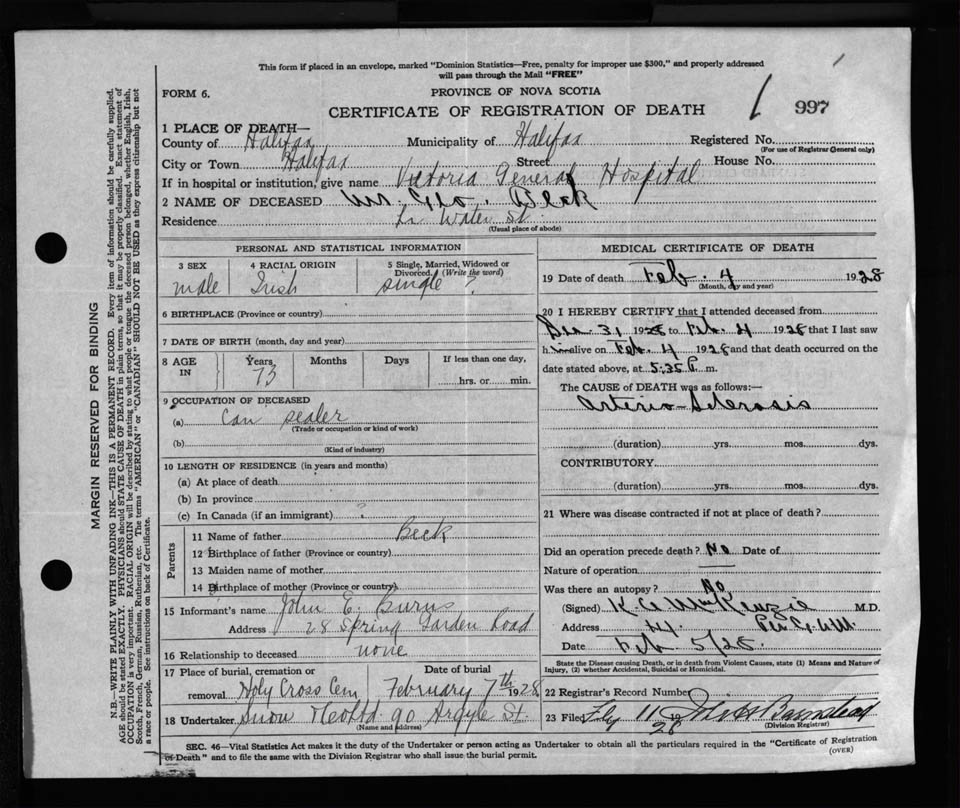 This form if placed in an envelope, marked "Dominion Statistics—Free, penalty for improper use $300," and properly addressed
will pass through the Mail "FREE"
FORM 6.
PROVINCE OF NOVA SCOTIA
CERTIFICATE OF REGISTRATION OF DEATH
997
1 PLACE OF DEATH—
County of Halifax Municipality of Halifax Registered No.
(For use of Registrar General only)
City or Town Halifax Street House No.
If in hospital or institution, give name Victoria General Hospital
2 NAME OF DECEASED Mr. Geo. Beck
Residence Water St.
(Usual place of abode)
PERSONAL AND STATISTICAL INFORMATION
3 SEX 4 RACIAL ORIGIN 5 Single, Married, Widowed or
Divorced. (Write the word)
male Irish single ?
6 BIRTHPLACE (Province or country)
7 DATE OF BIRTH (month, day and year)
8 AGE IN Years Months Days If less than one day,
73 hrs. or min.
9 OCCUPATION OF DECEASED
(a) can sealer
(Trade or occupation or kind of work)
(b)
(Kind of industry)
10 LENGTH OF RESIDENCE (in years and months)
(a) At place of death
(b) In province
(c) In Canada (if an immigrant) ?
Parents
11 Name of father Beck
12 Birthplace of father (Province or country)
13 Maiden name of mother
14 Birthplace of mother (Province or country)
15 Informant's name John E. Burns
Address 28 Spring Garden Road
16 Relationship to deceased none
17 Place of burial, cremation or Date of burial
removal Holy Cross Cem February 7th 1928
18 Undertaker Snow & Co Ltd 90 Argyle St.
(Name and address)
MEDICAL CERTIFICATE OF DEATH
19 Date of death Feb. 4 1928
(Month, day and year)
20 I HEREBY CERTIFY that I attended deceased from
Dec 31 1928 to Feb. 4 1928 that I last saw
him alive on Feb. 4 1928 and that death occurred on the
date stated above, at 5.35 P. m.
The CAUSE OF DEATH was as follows:—
Arterio-Sclerosis
(duration) yrs. mos. dys.
CONTRIBUTORY
(duration) yrs. mos. dys.
21 Where was disease contracted if not at place of death?
Did an operation precede death? No Date of
Nature of operation
Was there an autopsy? No
(Signed) MacKenzie M.D.
Address
Date Feb 5/28.
State the Disease causing Death, or in death from Violent Causes, state (1) Means and Nature of
Injury, (2) whether Accidental, Suicidal or Homicidal.
22 Registrar's Record Number
23 Filed Feb 11 1928
(Division Registrar)
SEC. 46—Vital Statistics Act makes it the duty of the Undertaker or person acting as Undertaker to obtain all the particulars required in the "Certificate of Registration
of Death" and to file the same with the Division Registrar who shall issue the burial permit.
(OVER)
MARGIN RESERVED FOR BINDING
N.B.—WRITE PLAINLY WITH UNFADING INK—THIS IS A PERMANENT RECORD. Every item of information should be carefully supplied.
AGE should be stated EXACTLY. PHYSICIANS should STATE CAUSE OF DEATH in plain terms, so that it may be properly classified. Exact statement of
OCCUPATION is very important. RACIAL ORIGIN will be described by stating to what people or tongue the deceased person belonged, whether English, Irish,
Scotch, French, German, Russian, Ruthenian, etc. The terms "AMERICAN" or "CANADIAN" SHOULD NOT BE USED as they express citizenship but not
a race or people. See instructions on back of Certificate.